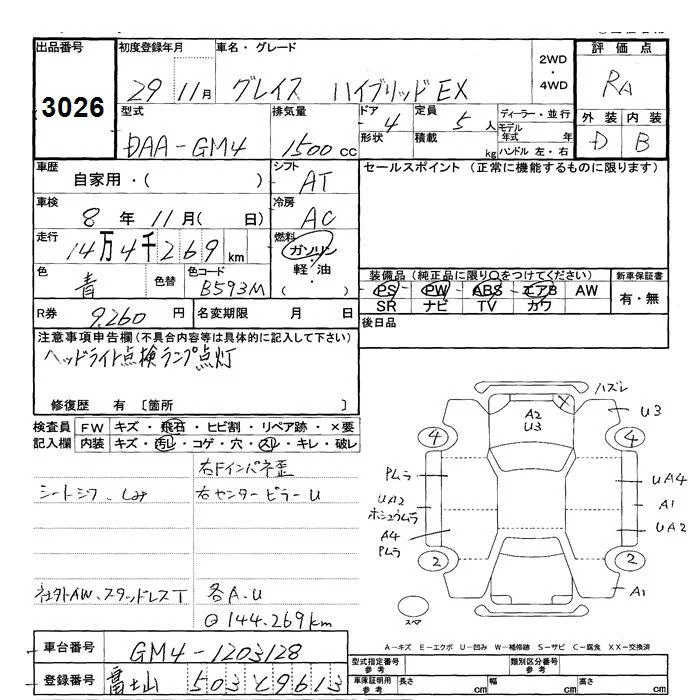 出品番号
3026
初度登録年月
29 11月
車名・グレード
グレイス ハイブリッドEX
2WD
・
4WD
評価点
RA
外装 内装
D B
型式
DAA-GM4
排気量
1500cc
ドア
4
形状
定員
5人
積載
kg
ディーラー・並行
モデル
年式 年
ハンドル 左・右
車歴
自家用・( )
シフト
AT
セールスポイント (正常に機能するものに限ります)
車検
8年11月( 日)
冷房
AC
走行
14万4千269km
燃料
ガソリン
・
軽・油
( )
色
青
色替
色コード
B593M
装備品 (純正品に限り○をつけてください)
PS PW ABS エアB AW
SR ナビ TV カワ
新車保証書
有・無
R券
9,260円
名変期限 月 日
後日品
注意事項申告欄(不具合内容等は具体的に記入して下さい)
ヘッドライト点検ランプ点灯
修復歴 有〔箇所 〕
検査員
記入欄
FW キズ・飛石・ヒビ割・リペア跡・×要
内装 キズ・汚レ・コゲ・穴・スレ・キレ・破レ
右Fインパネ歪
シートシワ、しみ
右センターピラーU
社外AW、スタッドレスT
各A、U
144.269km
ハズレ
A2
U3
U3
4
4
Pムラ
UA4
UA2
ホシュウムラ
A1
A4
UA2
Pムラ
2
2
A1
スペア
A-キズ E-エクボ U-凹み W-補修跡 S-サビ C-腐食 XX-交換済
車台番号
GM4-1203128
登録番号
富士山 503 9613
型式指定番号
参考
類別区分番号
参考
車庫証明用
参考
長さ cm
幅 cm
高さ cm